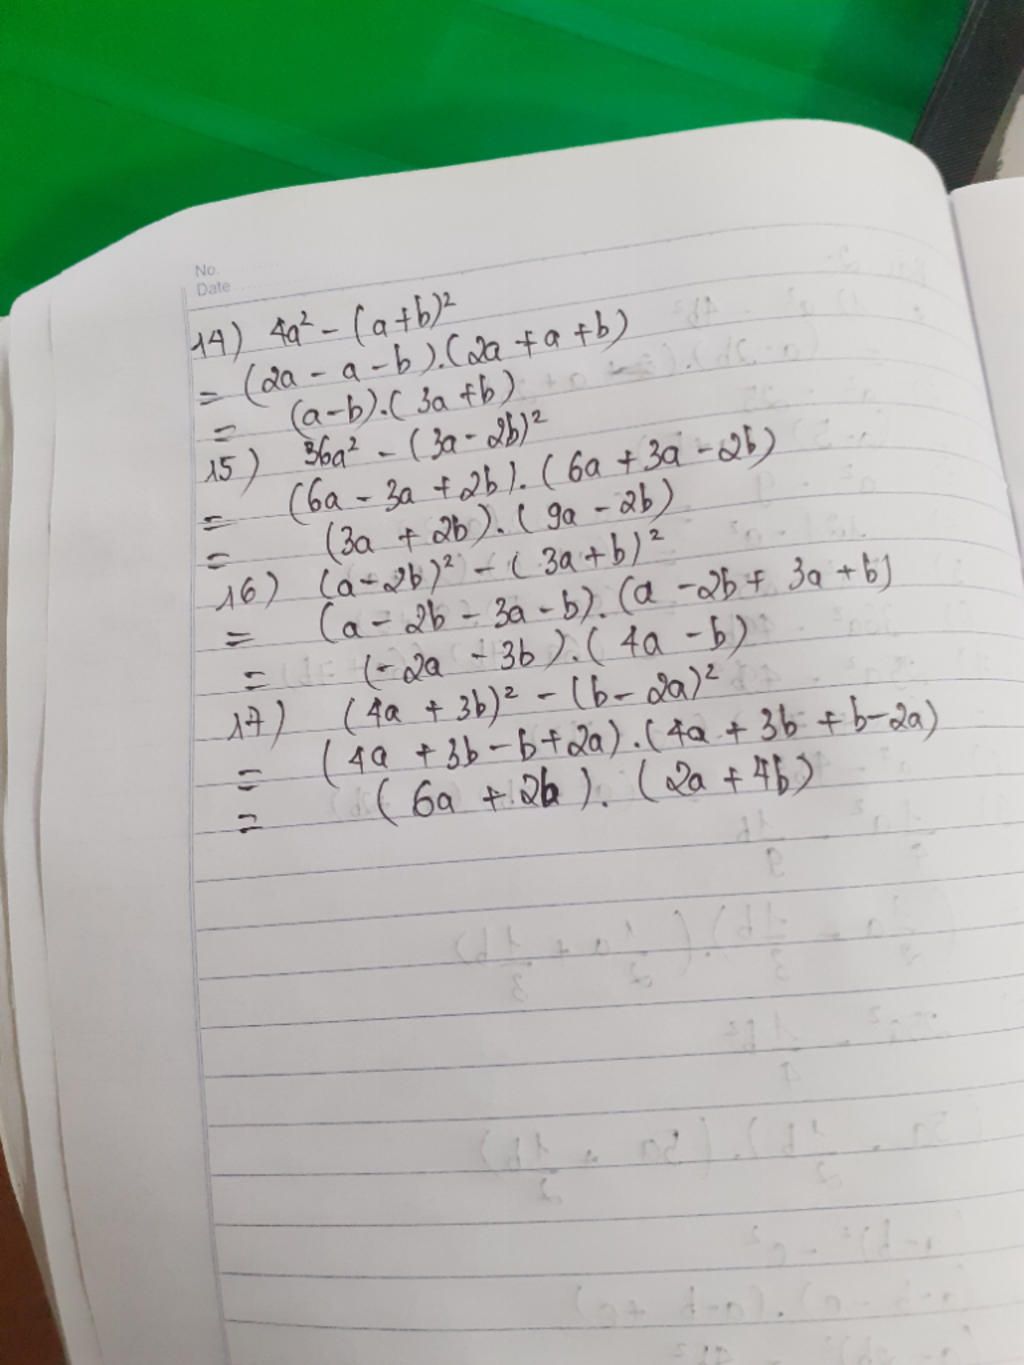 No.
Date
14) 4a² - (a+b)²
= (2a - a - b).(2a + a + b)
= (a-b).(3a+b)
15) 36a² - (3a - 2b)²
= (6a - 3a + 2b).(6a + 3a - 2b)
= (3a + 2b).(9a - 2b)
16) (a - 2b)² - (3a+b)²
= (a - 2b - 3a - b).(a - 2b + 3a + b)
= (-2a - 3b).(4a - b)
17) (4a + 3b)² - (b - 2a)²
= (4a + 3b - b + 2a).(4a + 3b + b - 2a)
= (6a + 2b).(2a + 4b)